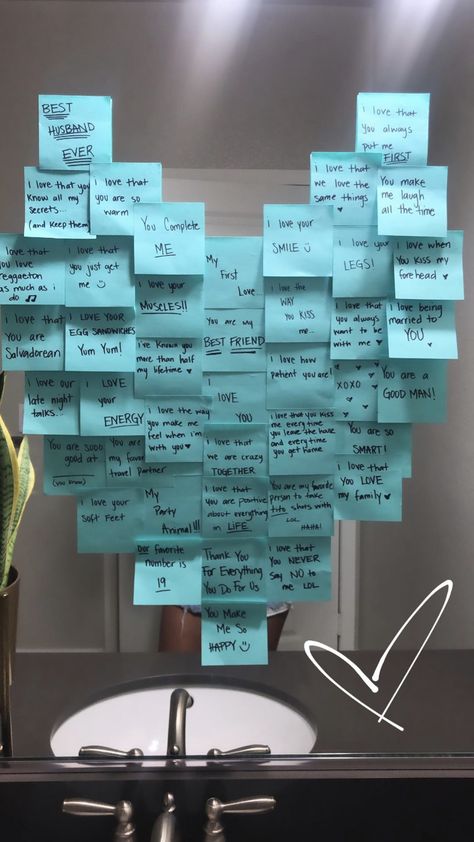 BEST
HUSBAND
EVER
i love that
you always
put me
FIRST
i love that you
know all my
secrets...
(and keep them)
i love that
you are so
warm
i love that
we love the
same things
You make
me laugh
all the time
You Complete
ME
i love your
SMILE
i love that
you love
reggaeton
as much as i
do
i love that
you just get
me
My
First
Love...
i love your
LEGS!
i love when
you kiss my
forehead
i love your
MUSCLES!!
i love the
WAY
you KISS
me...
i love that
you always
want to be
with me
i love being
married to
YOU
i love that
You are
Salvadorean
I LOVE YOUR
EGG SANDWICHES
Yum Yum!
You are my
BEST FRIEND
i've known you
more than half
my lifetime
i love how
patient you are!
XOXO
You are a
GOOD MAN!
i love our
late night
talks...
i LOVE
your
ENERGY
i LOVE
YOU
i love the way
you make me
feel when i'm
with You
i love that you kiss
me every time
you leave the house
and every time
you get home.
You are so
SMART!
You are sooo
good at
(you know)
You are my
favorite
travel Partner
i love that
we are crazy
TOGETHER
i love that
You LOVE
my family
i love your
Soft Feet
My
Party
Animal!!!
i love that
you are positive
about everything
in LIFE
You are my favorite
person to take
tito shots with
LOL
HAHA!
Our favorite
number is
19
Thank You
For Everything
You Do For Us
i love that
you NEVER
say NO to
me LOL
You Make
Me So
HAPPY